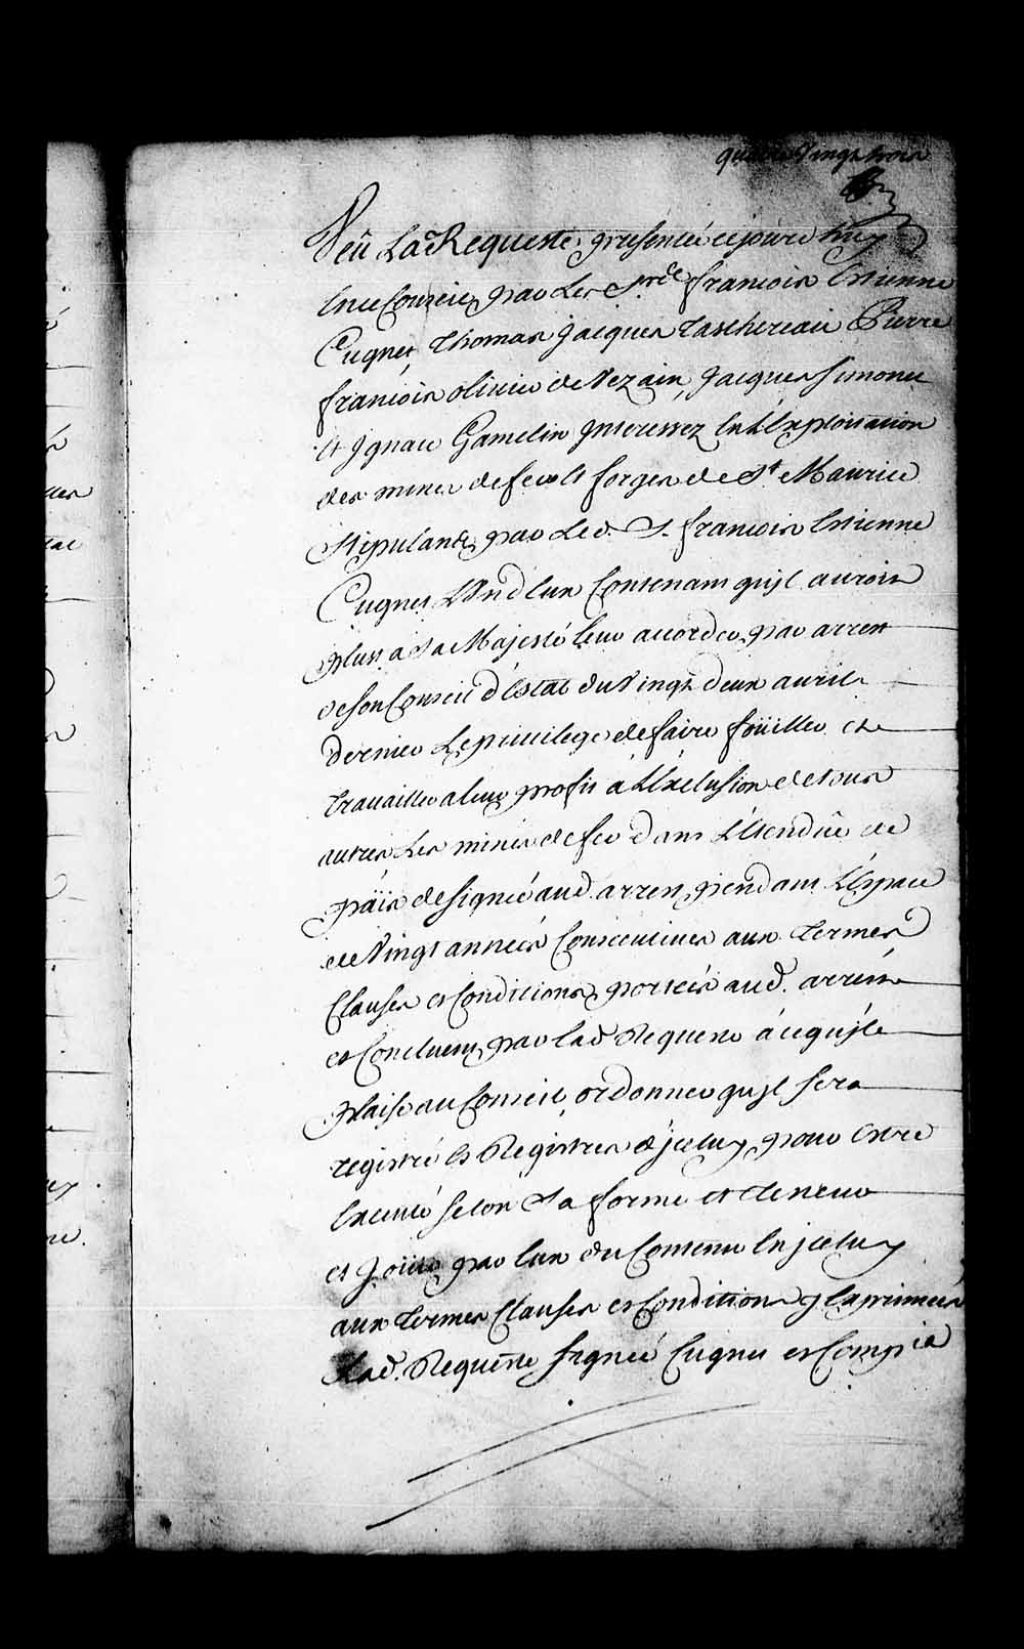 quatre Vingt trois
Veû La Requeste presentée cejourd huy
en ce Conseil par Les Srs. de françois Estienne
Cugnet, Thomas Jacques Taschereau Pierre
françois olivier de Vezain, Jacques Simonet
et Ignace Gamelin Interessez En L'Exploitation
des mines de fer et forges de St Maurice
Stipulante par Led. S. françois Estienne
Cugnet L'Un d'Eux Contenant qu'jl auroit
plust a Sa Majesté leur accorder par arrest
de son Conseil d'Estat du Vingt deux avril
dernier Le privilege de faire foüiller et
travailler a leur profit à L'Exclusion de tous
autres Les mines de fer dans L'Etenduë de
païs designée aud. arrest pendant L'Espace
de Vingt années Consecutives aux termes
Clauses et Conditions portées aud. arrest
et Concluent par lad. Requeste à ce qu'jl
plaise au Conseil ordonner qu'jl sera
registré Es Registres d'jceluy pour Estre
Executé selon Sa forme et teneur
et Joüir par Eux du Contenu En jceluy
aux termes Clauses et Conditions y Exprimées
Lad. Requeste signée Cugnet et Compie